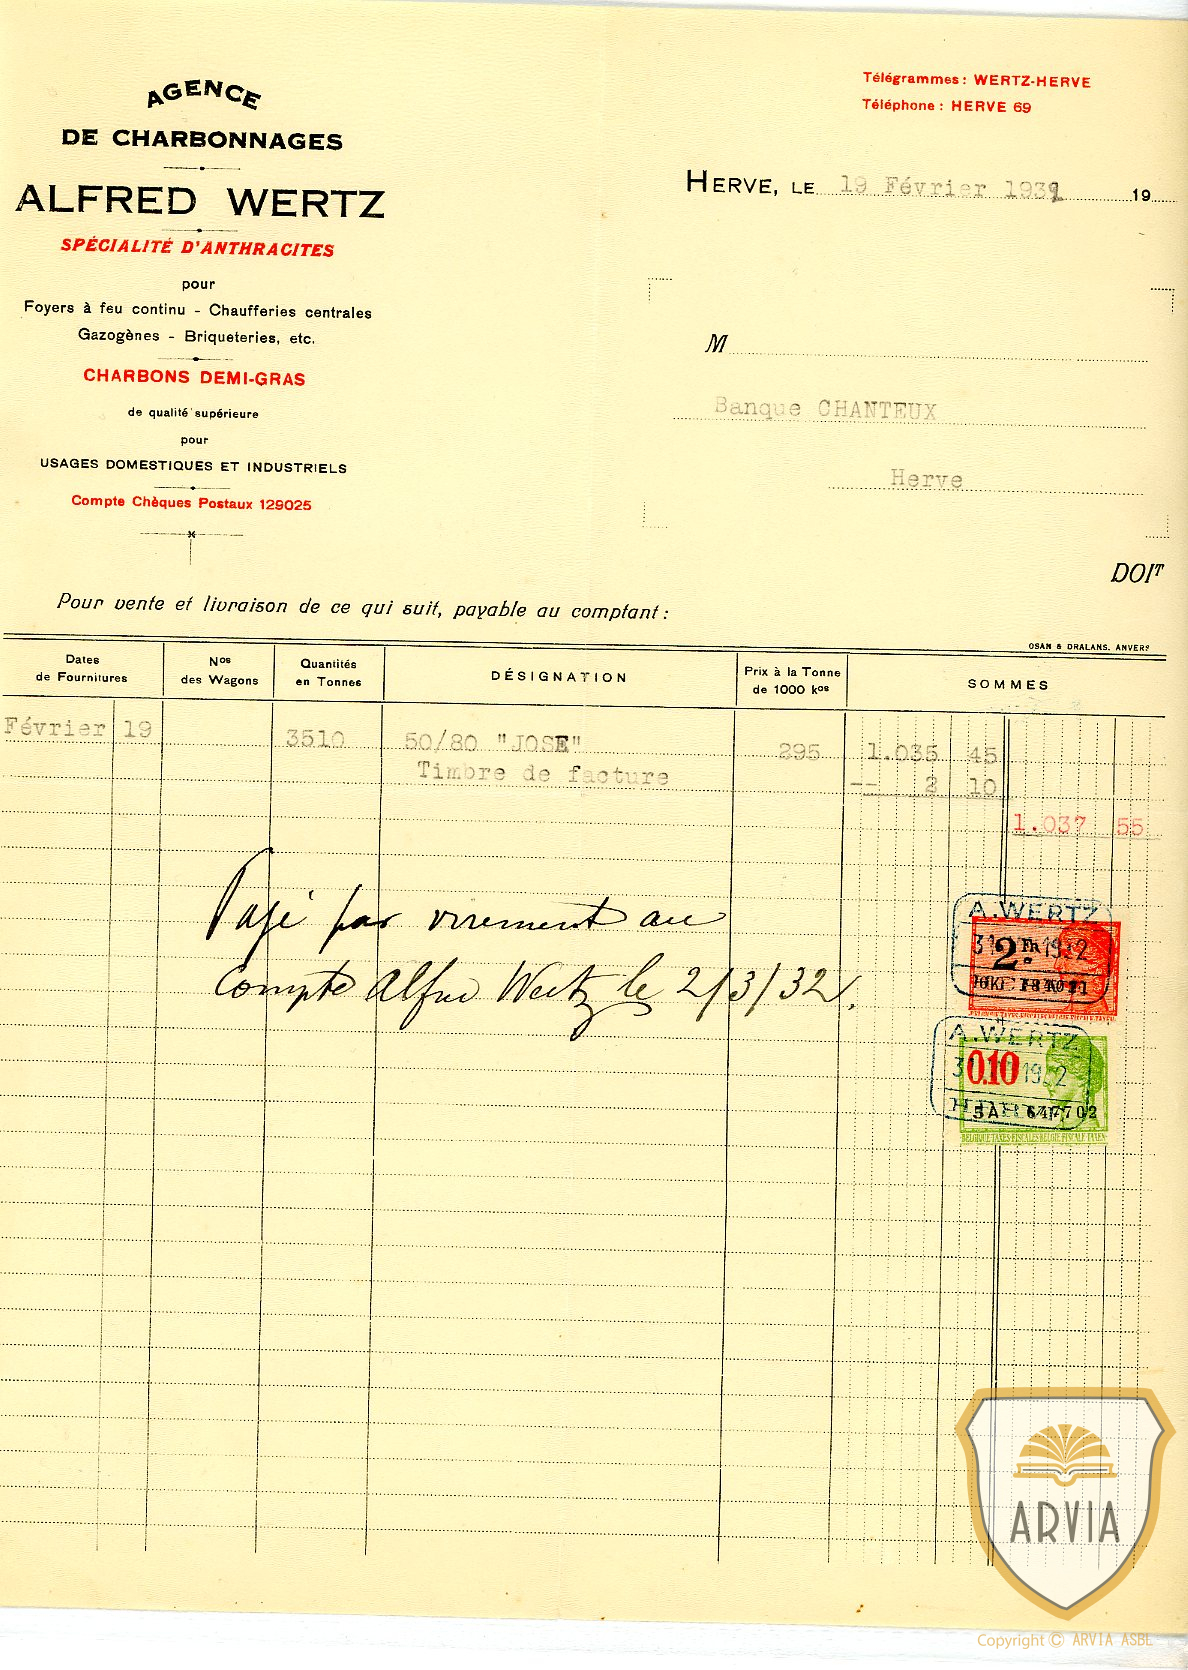 AGENCE
DE CHARBONNAGES
ALFRED WERTZ
SPÉCIALITÉ D'ANTHRACITES
pour
Foyers à feu continu - Chaufferies centrales
Gazogènes - Briqueteries, etc.
CHARBONS DEMI-GRAS
de qualité supérieure
pour
USAGES DOMESTIQUES ET INDUSTRIELS
Compte Chèques Postaux 129025
Télégrammes : WERTZ-HERVE
Téléphone : HERVE 69
HERVE, LE 19 Février 1932 19
M
Banque CHANTEUX
Herve
DOIT
Pour vente et livraison de ce qui suit, payable au comptant :
OSAN & DRALANS. ANVERS
Dates de Fournitures Nos des Wagons Quantités en Tonnes DÉSIGNATION Prix à la Tonne de 1000 kos SOMMES
Février 19 3510 50/80 "JOSE" 295 1.035 45
Timbre de facture -- 2 10
1.037 55
Payé par virement au
compte Alfred Wertz le 2/3/32.
A.WERTZ
2 FR
BELGIQUE TAXES FISCALES BELGIE FISCALE TAXEN
A.WERTZ
0.10
5A 647702
BELGIQUE-TAXES-FISCALES BELGIE FISCALE TAXEN
ARVIA
Copyright © ARVIA ASBL